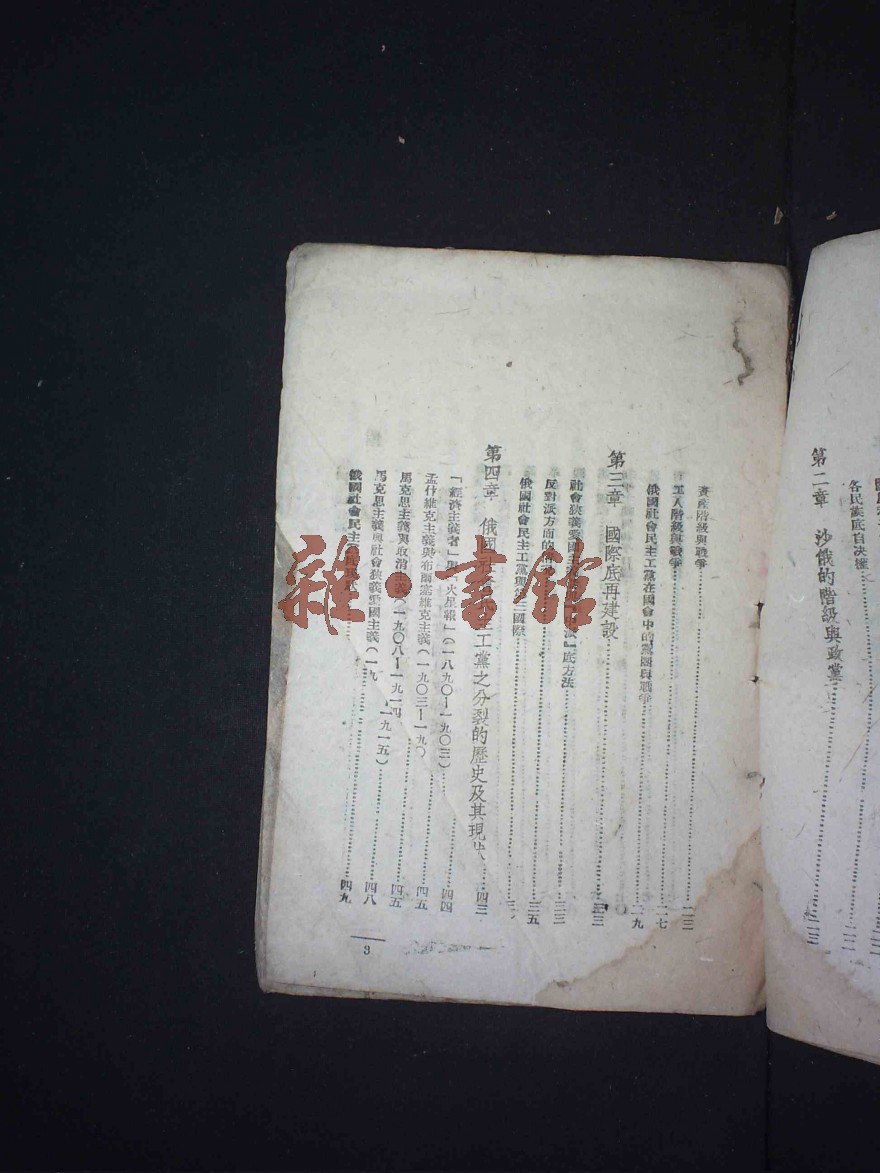 各民族底自決權
第二章　沙俄的階級與政黨……二三
資產階級與戰爭……二三
工人階級與戰爭……二七
俄國社會民主工黨在國會中的黨團與戰爭……二九
第三章　國際底再建設……三三
社會狹義愛國主 』底方法……三三
反對派方面的 ……三五
俄國社會民主工黨與第三國際
第四章　俄國 工黨之分裂的歷史及其現狀……四三
「經濟主義者」與「火星報」(一八九〇—一九〇三)……四四
孟什維克主義與布爾塞維克主義(一九〇三—一九〇……四五
馬克思主義與取消主義(一九〇八—一九一四……四五
馬克思主義與社會狹義愛國主義(一九 一九一五)……四八
俄國社會民主 現狀……四九
3
雜·書館